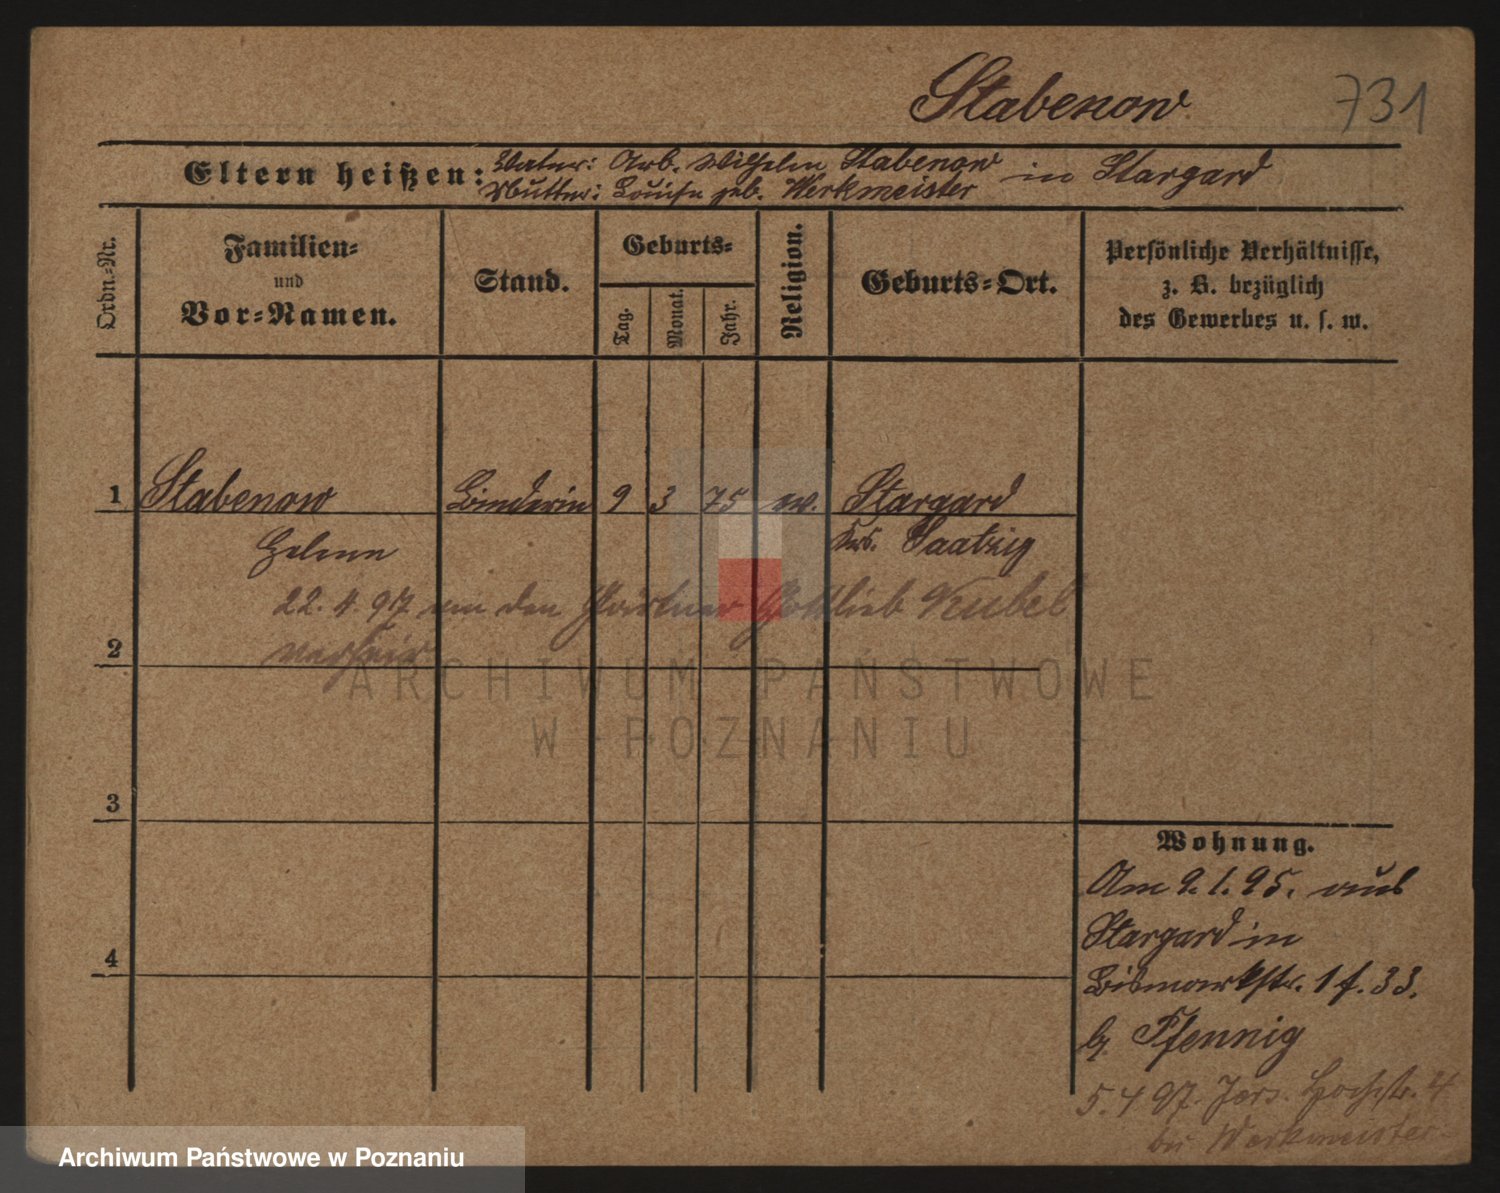 Stabenow
731
Eltern heißen: Vater: Arb. Wilhelm Stabenow in Stargard
Mutter: Louise geb. Werkmeister
Ordn.-Nr.
Familien-
und
Vor-Namen.
Stand.
Geburts-
Tag.
Monat.
Jahr.
Religion.
Geburts-Ort.
Persönliche Verhältnisse,
z. B. bezüglich
des Gewerbes u. s. w.
1 Stabenow Binderin 9 3 75 ev. Stargard
Helene Krs. Saatzig
22. 4. 97. an den Gärtner Gottlieb Kubel
verheir.
2
ARCHIWUM PAŃSTWOWE
W POZNANIU
3
Wohnung.
Am 9. 1. 95. aus
Stargard in
4
Bismarkstr. 1 f. 33.
b. Pfennig
5. 4 97. Jers. Hochstr. 4
bei Werkmeister
Archiwum Państwowe w Poznaniu